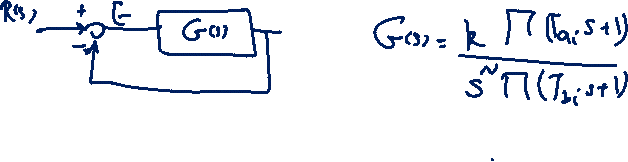 R(s) + E G(s)
−
G(s) = k ∏ (T_{a_i} s+1) / s^N ∏ (T_{b_i} s+1)